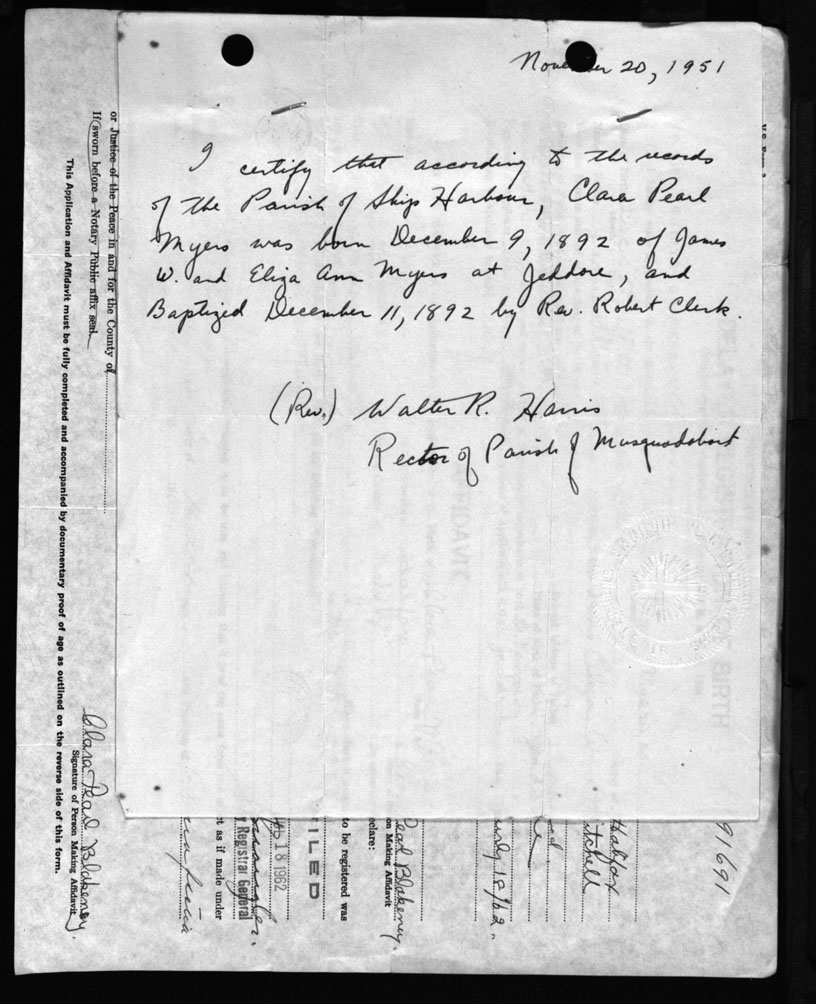 November 20, 1951
I certify that according to the records
of the Parish of Ships Harbour, Clara Pearl
Myers was born December 9, 1892 of James
W. and Eliza Ann Myers at Jeddore, and
Baptized December 11, 1892 by Rev. Robert Clerk.
(Rev.) Walter R. Harris
Rector of Parish of Musquodoboit
or Justice of the Peace in and for the County of
If sworn before a Notary Public affix seal.
This Application and Affidavit must be fully completed and accompanied by documentary proof of age as outlined on the reverse side of this form.
Clara Pearl Blakeney
Signature of Person Making Affidavit
91691
Halifax
itchell
18/62.
Pearl Blakeney.
on Making Affidavit
eclare:
to be registered was
FILED
18 1962
Registrar General
t as if made under
BIRTH
AFFIDAVIT